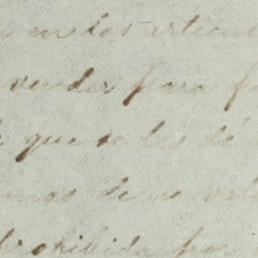 en los articu
vender para f
que se les dé
mas de su vol
prohibida por